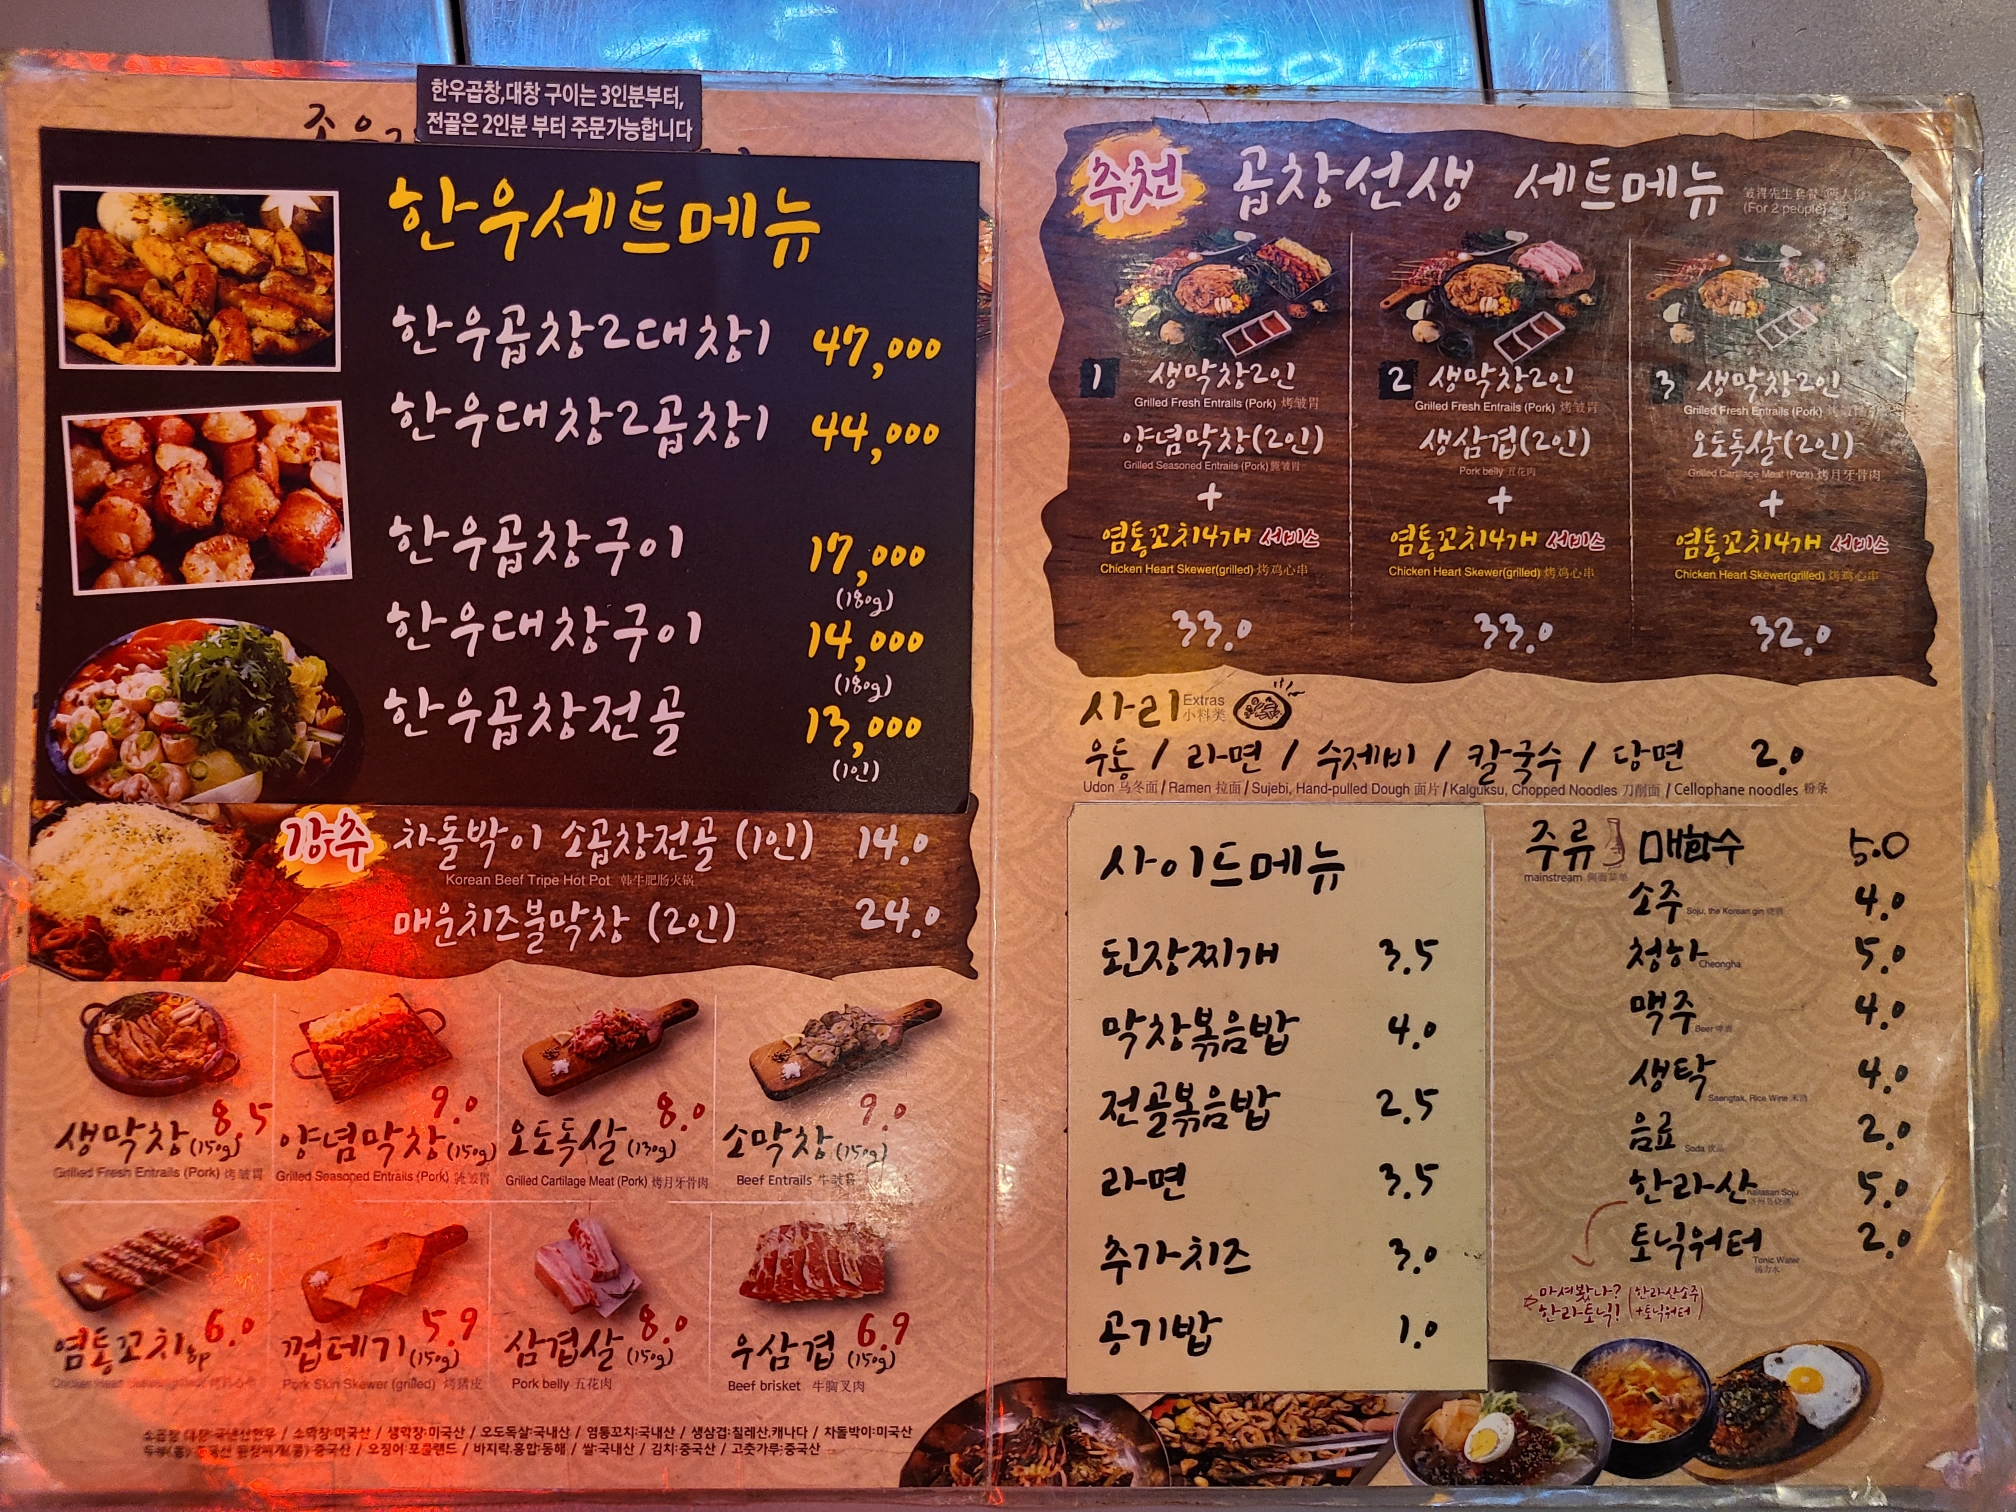 한우곱창,대창 구이는 3인분부터,
전골은 2인분 부터 주문가능합니다
한우세트메뉴
한우곱창2대창1 47,000
한우대창2곱창1 44,000
한우곱창구이 17,000
(180g)
한우대창구이 14,000
(180g)
한우곱창전골 13,000
(1인)
강추 차돌박이 소곱창전골 (1인) 14.0
Korean Beef Tripe Hot Pot 韩牛肥肠火锅
매운치즈불막창 (2인) 24.0
생막창 (150g) 8.5
Grilled Fresh Entrails (Pork) 烤皱胃
양념막창 (150g) 9.0
Grilled Seasoned Entrails (Pork)
오도독살 (130g) 8.0
Grilled Cartilage Meat (Pork) 烤月牙骨肉
소막창 (150g) 9.0
Beef Entrails
염통꼬치 8p 6.0
껍데기 (150g) 5.9
Pork Skin Skewer (grilled) 烤猪皮
삼겹살 (150g) 8.0
Pork belly 五花肉
우삼겹 (150g) 6.9
Beef brisket 牛胸叉肉
소곱창 대창:국내산한우 / 소막창:미국산 / 생막창:미국산 / 오도독살:국내산 / 염통꼬치:국내산 / 생삼겹:칠레산,캐나다 / 차돌박이:미국산
중국산 / 오징어:포클랜드 / 바지락,홍합:동해 / 쌀:국내산 / 김치:중국산 / 고춧가루:중국산
추천 곱창선생 세트메뉴
(For 2 people)
1 생막창2인
Grilled Fresh Entrails (Pork) 烤皱胃
양념막창(2인)
Grilled Seasoned Entrails (Pork)
+
염통꼬치4개 서비스
Chicken Heart Skewer(grilled) 烤鸡心串
33.0
2 생막창2인
Grilled Fresh Entrails (Pork) 烤皱胃
생삼겹(2인)
Pork belly 五花肉
+
염통꼬치4개 서비스
Chicken Heart Skewer(grilled) 烤鸡心串
33.0
3 생막창2인
Grilled Fresh Entrails (Pork)
오도독살(2인)
Grilled Cartilage Meat (Pork) 烤月牙骨肉
+
염통꼬치4개 서비스
Chicken Heart Skewer(grilled) 烤鸡心串
32.0
사리 Extras
小料类
우동 / 라면 / 수제비 / 칼국수 / 당면 2.0
Udon 乌冬面 / Ramen 拉面 / Sujebi, Hand-pulled Dough 面片 / Kalguksu, Chopped Noodles 刀削面 / Cellophane noodles 粉条
사이드메뉴
된장찌개 3.5
막창볶음밥 4.0
전골볶음밥 2.5
라면 3.5
추가치즈 3.0
공기밥 1.0
주류 매화수 5.0
mainstream
소주 4.0
Soju, the Korean gin 烧酒
청하 5.0
Cheongha
맥주 4.0
Beer 啤酒
생탁 4.0
Saengtak, Rice Wine 米酒
음료 2.0
Soda
한라산 5.0
Hallasan Soju
토닉워터 2.0
Tonic Water
汤力水
마셔봤나? (한라산소주
한라토닉! +토닉워터)